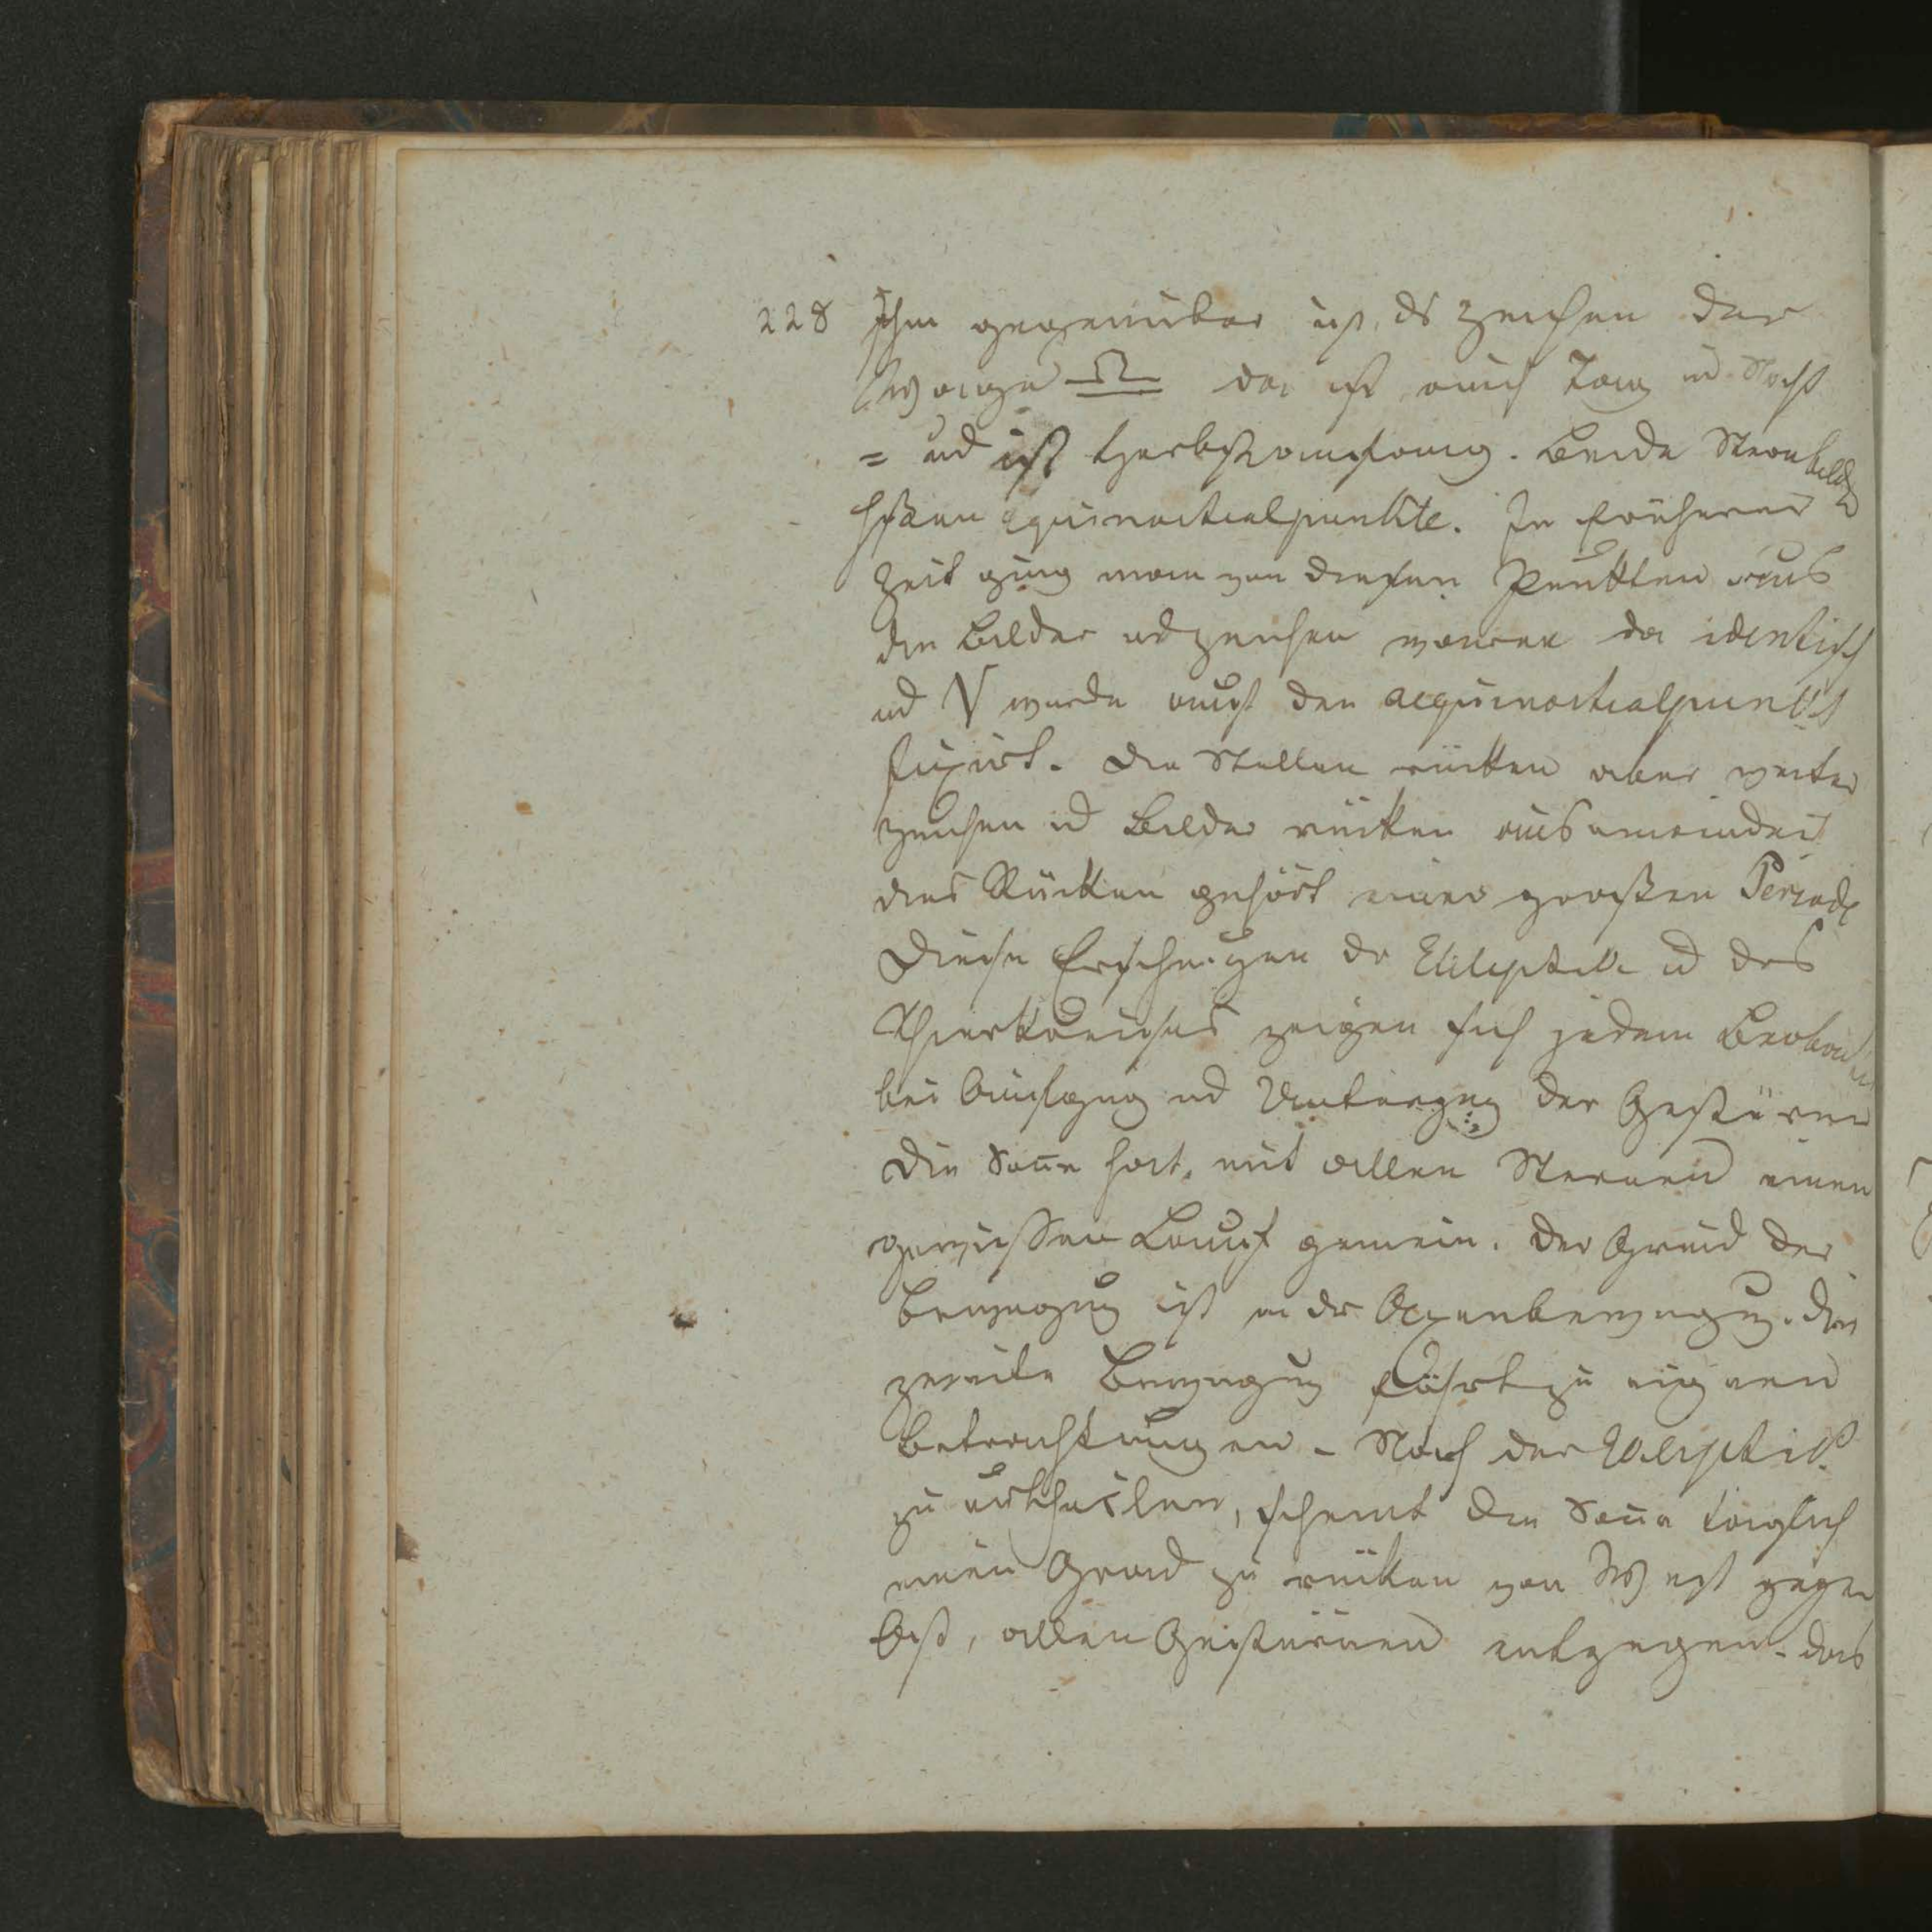 228 Ihm gegenüber ist ds Zeichen der
Wage ♎ da ist auch Tag ud Nacht
= ud ist Herbstanfang. Beide Sternbilder
hßen Equinoctialpunkte. In früherer
Zeit ging man von diesen Punkten aus
die Bilder ud Zeichen waren da identisch
ud ♈ wurde auf den aequinoctialpunkt
fixirt. Die Stellen rücken aber weiter
Zeichen ud Bilder rücken auseinander
dies Rücken gehört einer großen Periode
Diese Erscheingen dr Ekliptik ud des
Thierkreises zeigen sich jedem Beobach
bei Aufgang ud Untergang der Gestirne
Die Soñe hat mit allen Sternen einen
gewissen Lauf gemein. Der Grund der
Bewegung ist in dr Axenbewegung. Die
zweite Bewegung führt zu eignen
Betrachtungen - Nach der Ekliptik
zu urtheilen, scheint die Soñe täglich
einen Grad zu rücken von West gegen
Ost, allen Gestirnen entgegen. das